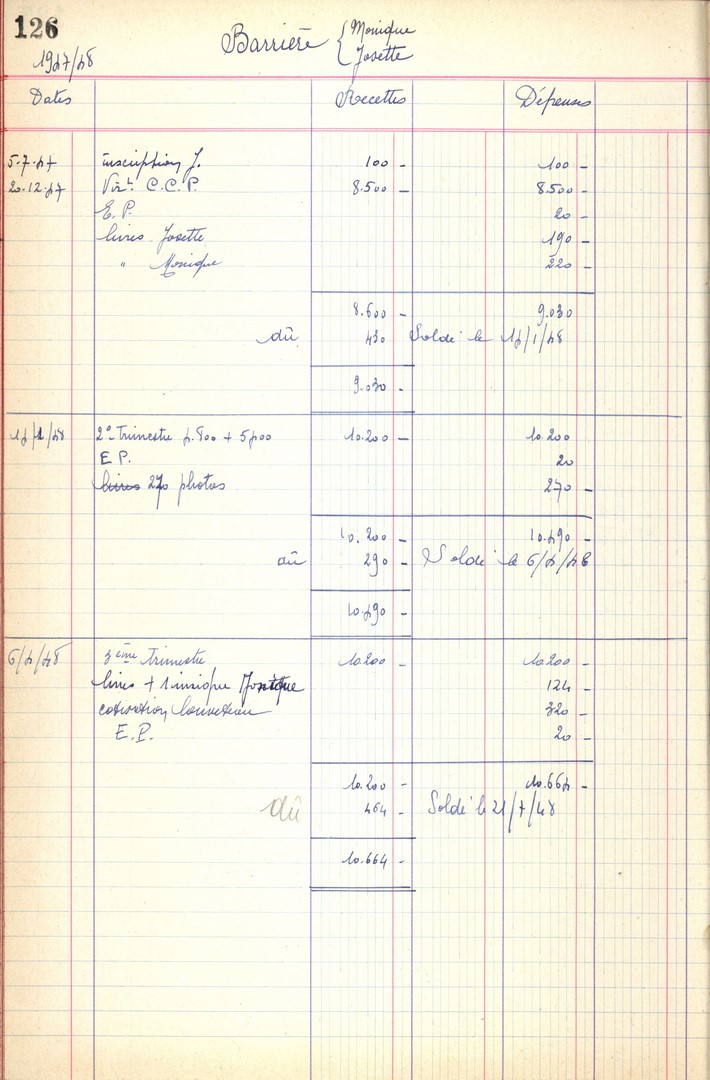 126
1947/48
Barrière { Monique
Josette
Dates Recettes Dépenses
5.7.47 inscription J. 100 - 100 -
20.12.47 Virt C.C.P. 8.500 - 8.500 -
E.P. 20 -
livres Josette 190 -
" Monique 220 -
8.600 - 9.030
dû 430 Soldé le 14/1/48
9.030 -
14/1/48 2e Trimestre 4.800 + 5400 10.200 - 10.200
E P. 20
livres 270 photos 270 -
10.200 - 10.490 -
dû 290 - Soldé le 6/4/48
10.490 -
6/4/48 3ème Trimestre 10.200 - 10.200 -
livres + 1 insigne 124 -
cotisation 320 -
E.P. 20 -
10.200 - 10.664 -
dû 464 - Soldé le 21/7/48
10.664 -